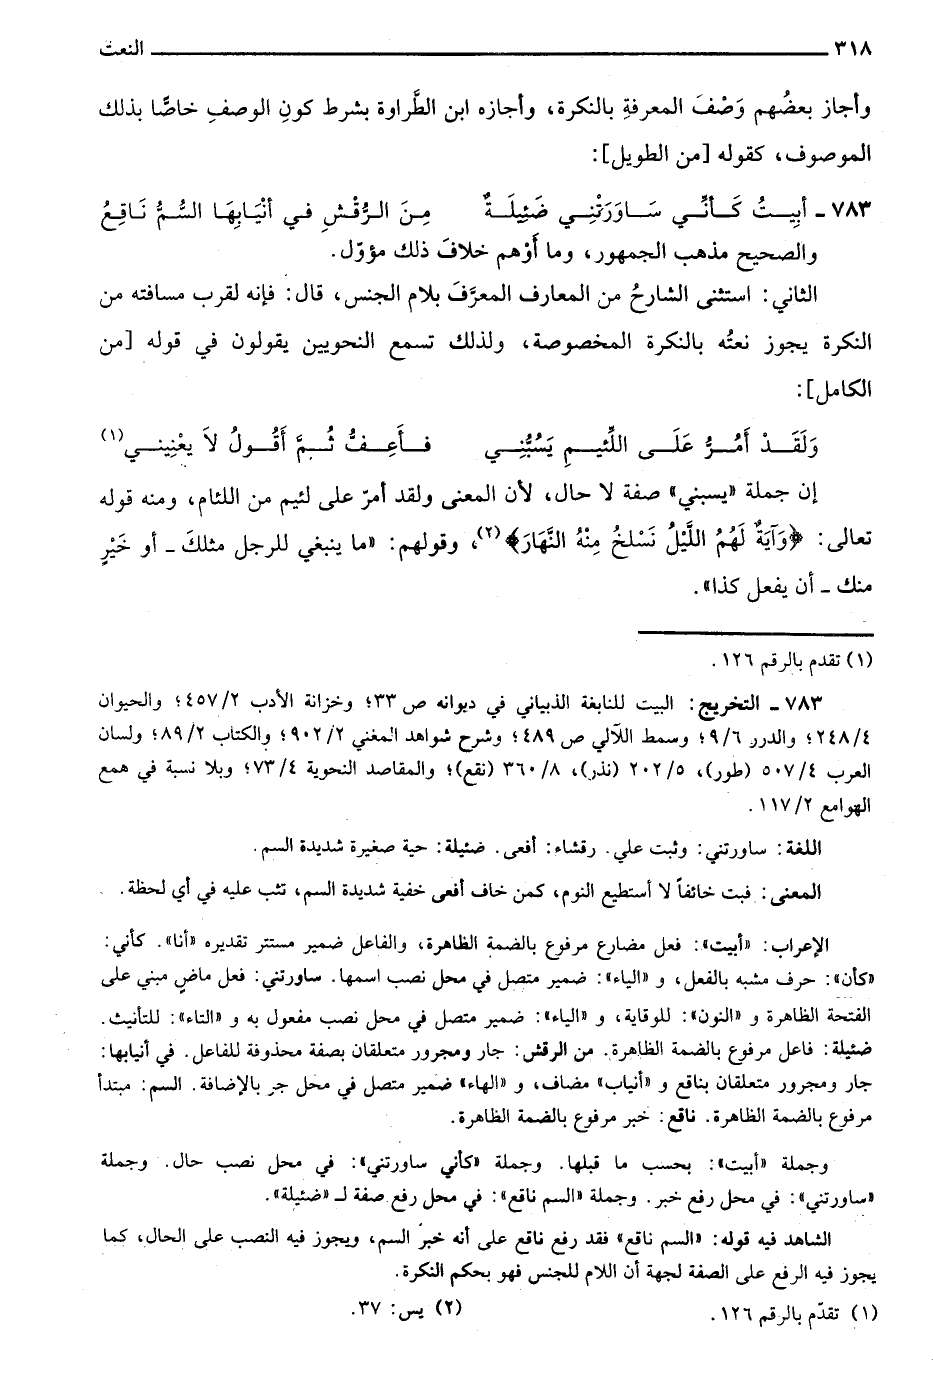 ٣١٨ النعت
وأجاز بعضُهم وَصْفَ المعرفةِ بالنكرة، وأجازه ابن الطَّراوة بشرط كونِ الوصفِ خاصًّا بذلك
الموصوف، كقوله [من الطويل]:
٧٨٣ ـ أَبِيتُ كَأَنِّي سَاوَرَتْنِي ضَئِيلَةٌ مِنَ الرُّقْشِ في أَنْيَابِهَا السُّمُّ نَاقِعُ
والصحيح مذهب الجمهور، وما أَوْهم خلافَ ذلك مؤوّل.
الثاني: استثنى الشارحُ من المعارف المعرَّفَ بلام الجنس، قال: فإنه لقرب مسافته من
النكرة يجوز نعتُه بالنكرة المخصوصة، ولذلك تسمع النحويين يقولون في قوله [من
الكامل]:
وَلَقَدْ أَمُرُّ عَلَى اللَّئِيمِ يَسُبُّنِي فَأَعِفُّ ثُمَّ أَقُولُ لاَ يَعْنِيني(١)
إن جملة «يسبني» صفة لا حال، لأن المعنى ولقد أمرّ على لئيم من اللئام، ومنه قوله
تعالى: ﴿وَآيَةٌ لَهُمُ اللَّيْلُ نَسْلخُ مِنْهُ النَّهَارَ﴾(٢)، وقولهم: «ما ينبغي للرجل مثلكَ ـ أو خَيْرٍ
منك ـ أن يفعل كذا».
(١) تقدم بالرقم ١٢٦.
٧٨٣ ـ التخريج: البيت للنابغة الذبياني في ديوانه ص ٣٣؛ وخزانة الأدب ٤٥٧/٢؛ والحيوان
٢٤٨/٤؛ والدرر ٩/٦؛ وسمط اللآلي ص ٤٨٩؛ وشرح شواهد المغني ٩٠٢/٢؛ والكتاب ٨٩/٢؛ ولسان
العرب ٥٠٧/٤ (طور)، ٢٠٢/٥ (نذر)، ٣٦٠/٨ (نقع)؛ والمقاصد النحوية ٧٣/٤؛ وبلا نسبة في همع
الهوامع ١١٧/٢.
اللغة: ساورتني: وثبت علي. رقشاء: أفعى. ضئيلة: حية صغيرة شديدة السم.
المعنى: فبت خائفاً لا أستطيع النوم، كمن خاف أفعى خفية شديدة السم، تثب عليه في أي لحظة.
الإعراب: «أبيت»: فعل مضارع مرفوع بالضمة الظاهرة، والفاعل ضمير مستتر تقديره «أنا». كأني:
«كأن»: حرف مشبه بالفعل، و «الياء»: ضمير متصل في محل نصب اسمها. ساورتني: فعل ماضٍ مبني على
الفتحة الظاهرة و «النون»: للوقاية، و «الياء»: ضمير متصل في محل نصب مفعول به و «التاء»: للتأنيث.
ضئيلة: فاعل مرفوع بالضمة الظاهرة. من الرقش: جار ومجرور متعلقان بصفة محذوفة للفاعل. في أنيابها:
جار ومجرور متعلقان بناقع و «أنياب» مضاف، و «الهاء» ضمير متصل في محل جر بالإضافة. السم: مبتدأ
مرفوع بالضمة الظاهرة. ناقع: خبر مرفوع بالضمة الظاهرة.
وجملة «أبيت»: بحسب ما قبلها. وجملة «كأني ساورتني»: في محل نصب حال. وجملة
«ساورتني»: في محل رفع خبر. وجملة «السم ناقع»: في محل رفع صفة لـ «ضئيلة».
الشاهد فيه قوله: «السم ناقع» فقد رفع ناقع على أنه خبر السم، ويجوز فيه النصب على الحال، كما
يجوز فيه الرفع على الصفة لجهة أن اللام للجنس فهو بحكم النكرة.
(١) تقدّم بالرقم ١٢٦. (٢) يس: ٣٧.